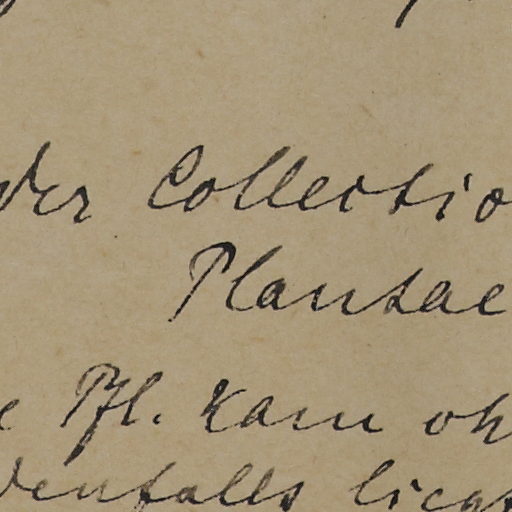 der Collectio
Plantae
e Pfl. kam oh
denfalls liegt